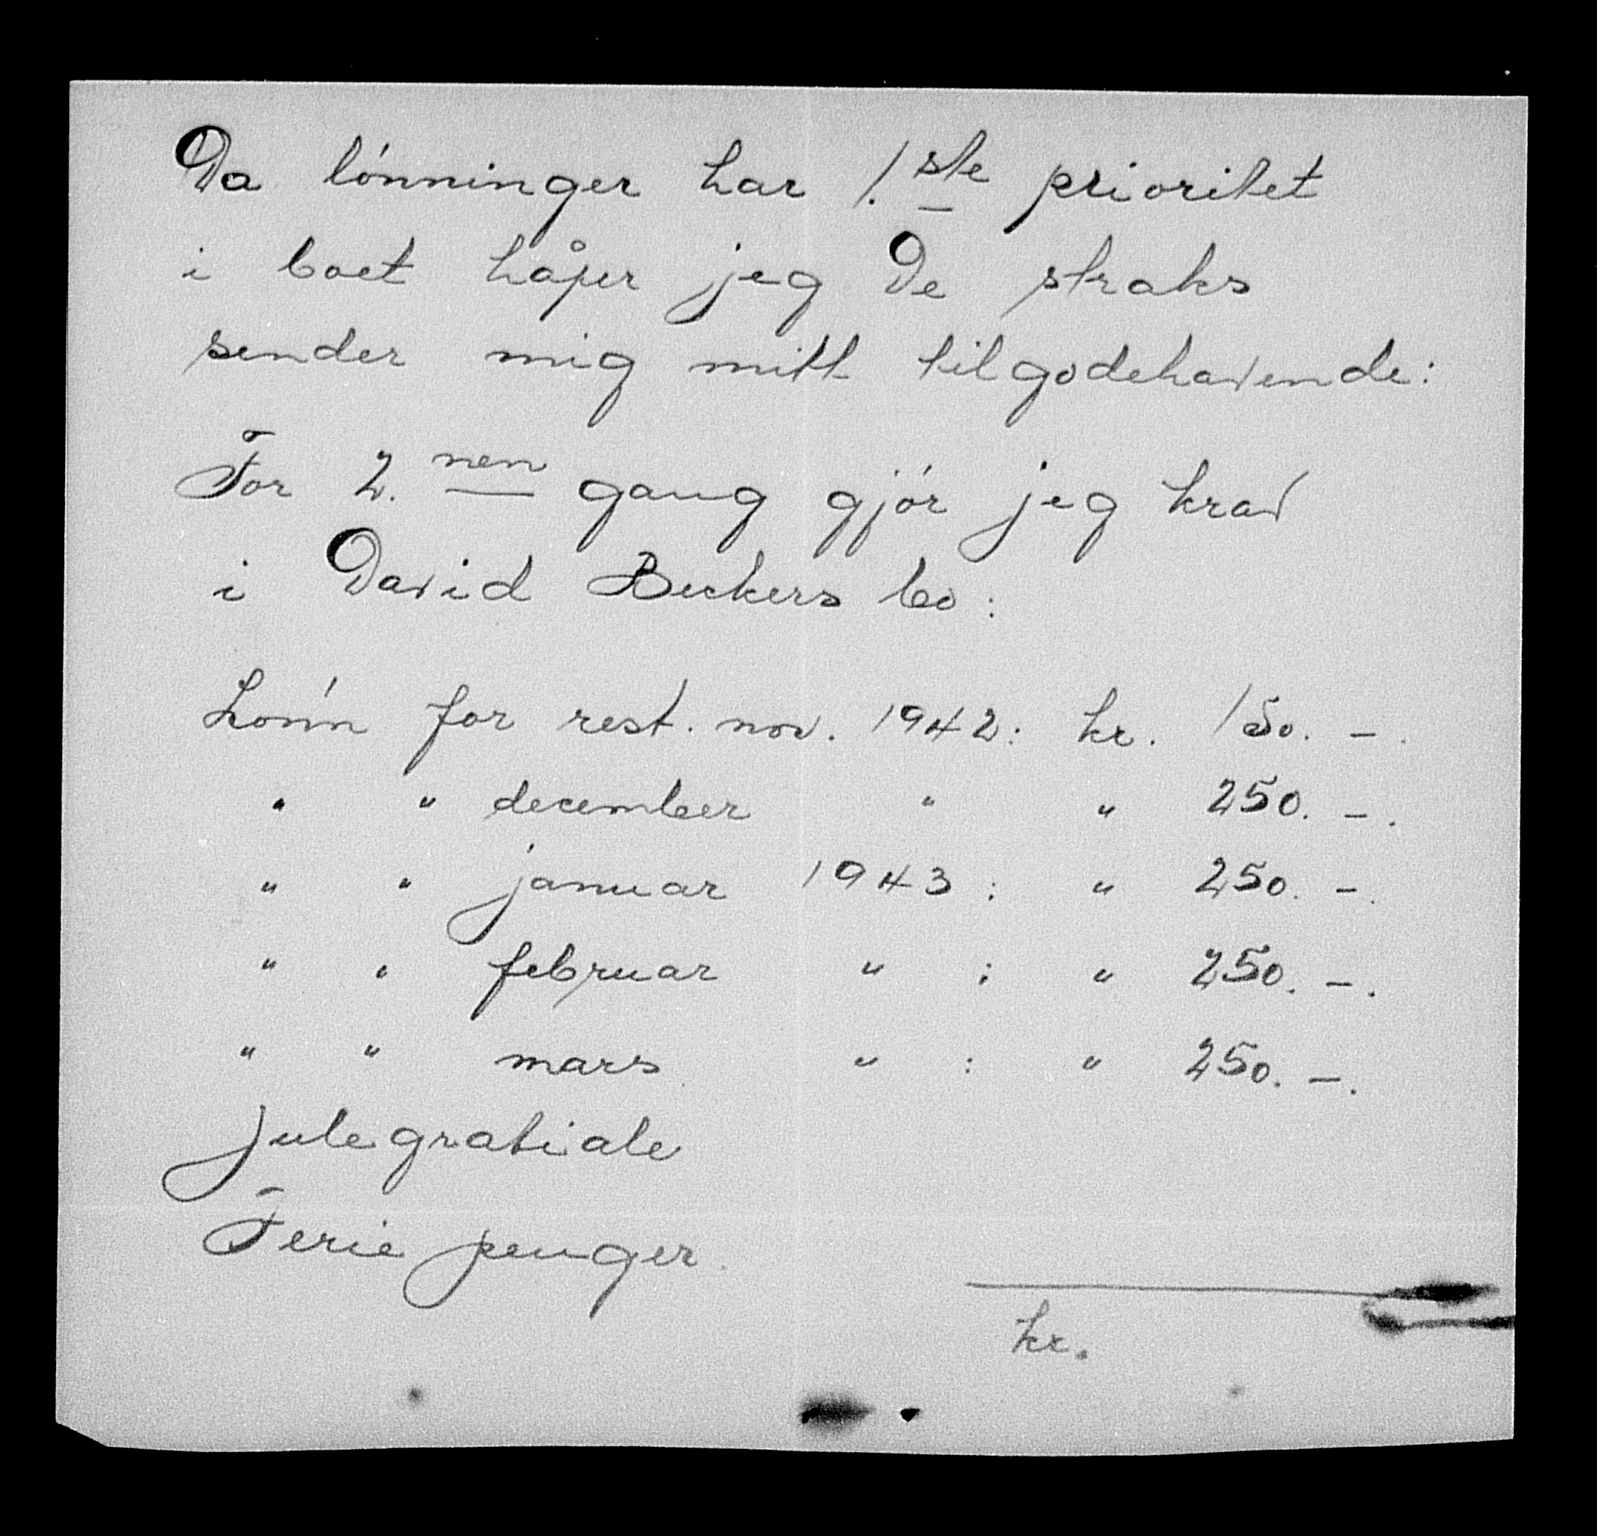 Da lónninger har 1.ste prioritet
i boet håper jeg De straks
sender mig mitt tilgodehavende:
For 2.nen gang gjór jeg krav
i David Beckers bo:
Lónn for rest. nov. 1942: kr. 150. -.
" " december " " 250. -.
" " januar 1943 : " 250. -.
" " februar " : " 250. -.
" " mars " : " 250. -.
Julegratiale
Ferie penger
kr.